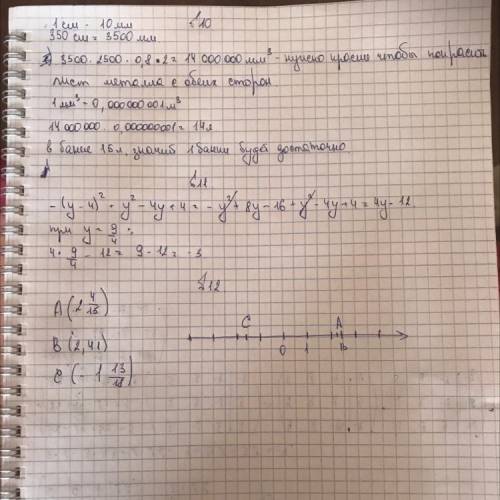 1 см - 10 мм
№10
350 см = 3500 мм
2) 3500 · 2500 · 0,8 · 2 = 14 000 000 мм³ - нужно краски чтобы покрасить
лист металла с обеих сторон
1 мм³ - 0,000000001 м³
14 000 000 · 0,000000001 = 14л
в банке 15л, значит 1 банки будет достаточно
№11
-(y-4)² + y² - 4y + 4 = -y² + 8y - 16 + y² - 4y + 4 = 4y - 12
при y = 9/4 :
4 · 9/4 - 12 = 9 - 12 = -3
№12
A(2 4/15)
B(2,41)
C(-1 13/18)
C A
0 1 B